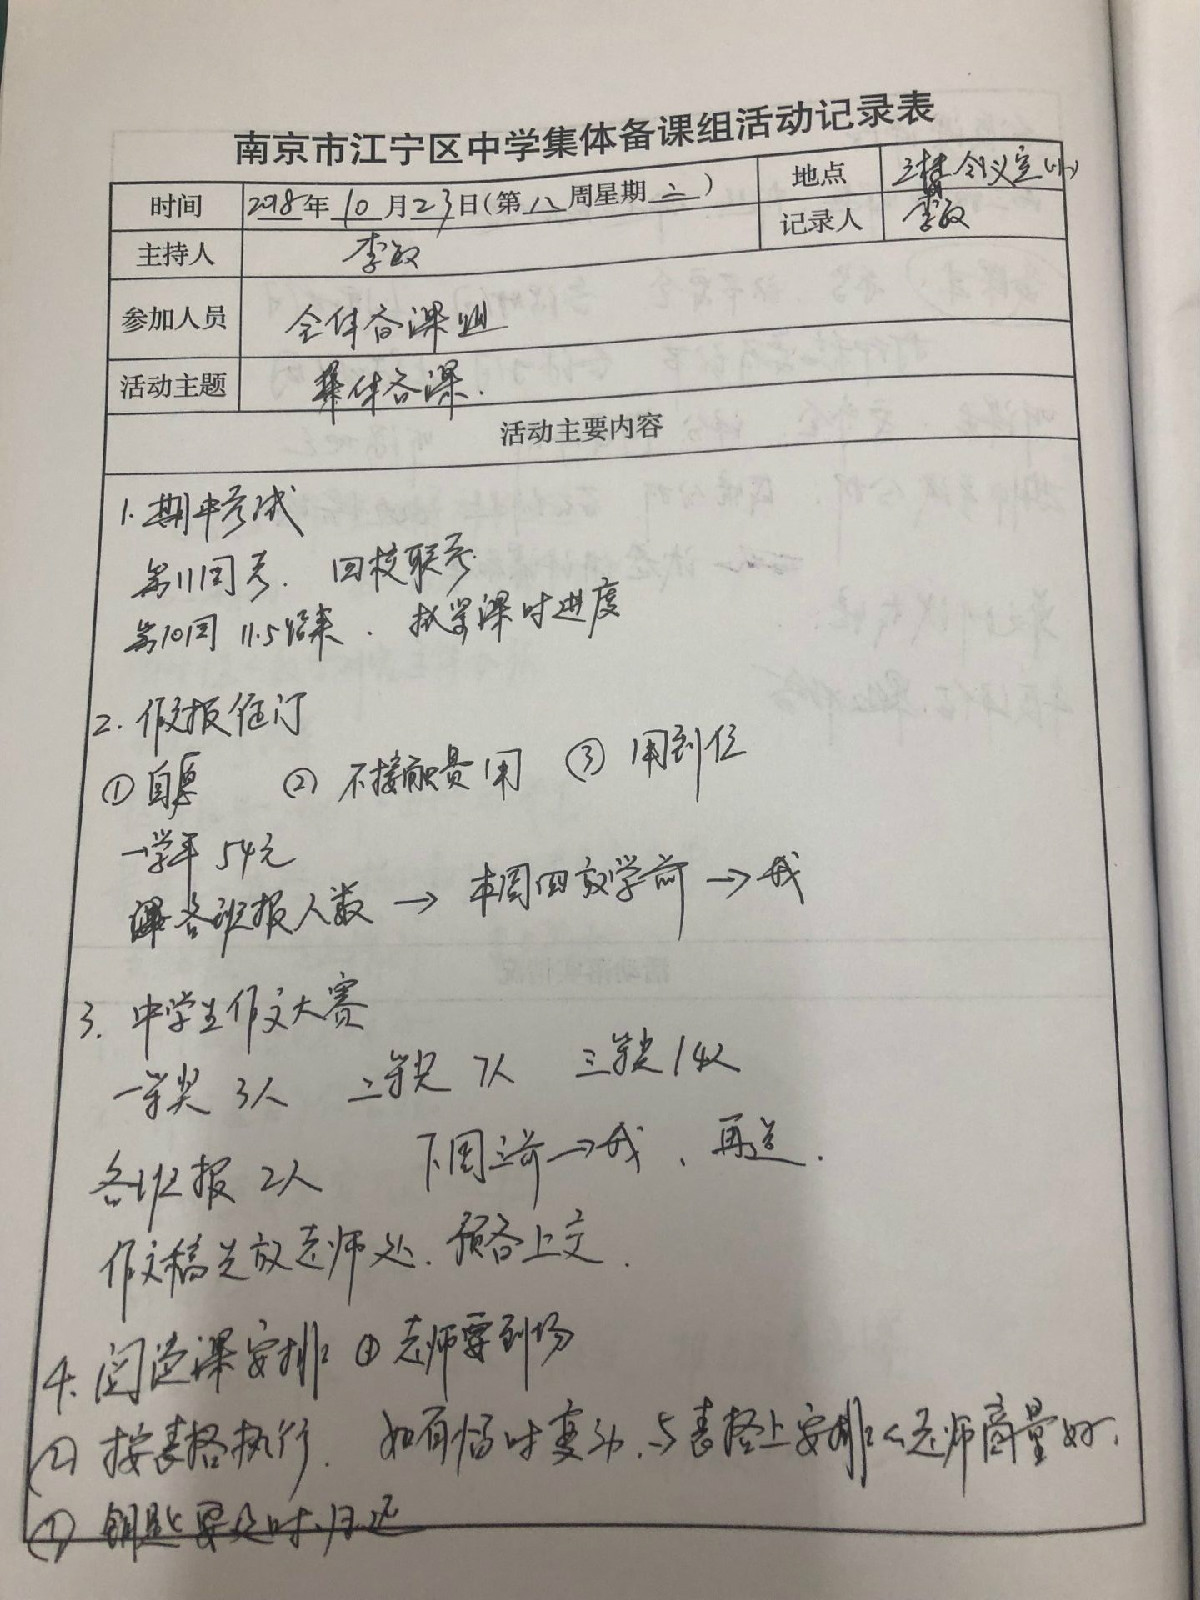 南京市江宁区中学集体备课组活动记录表
时间 2018年10月23日(第八周星期二) 地点 三楼会议室(小)
主持人 李敏 记录人 李敏
参加人员 全体备课组
活动主题 集体备课.
活动主要内容
1.期中考试
第11周考. 四校联考
第10周 11.5结束. 抓紧课时进度
2.作文报征订
①自愿 ②不接触费用 ③用到位
一学年54元
各班报人数→本周四放学前→我
3.中学生作文大赛
一等奖3人 二等奖7人 三等奖14人
各班报2人 下周三前→我、再送.
作文稿先放老师处.预备上交.
4.阅览课安排:①老师要到场
②按表格执行. 如有临时变动.与表格上安排的老师商量好.
钥匙要及时归还